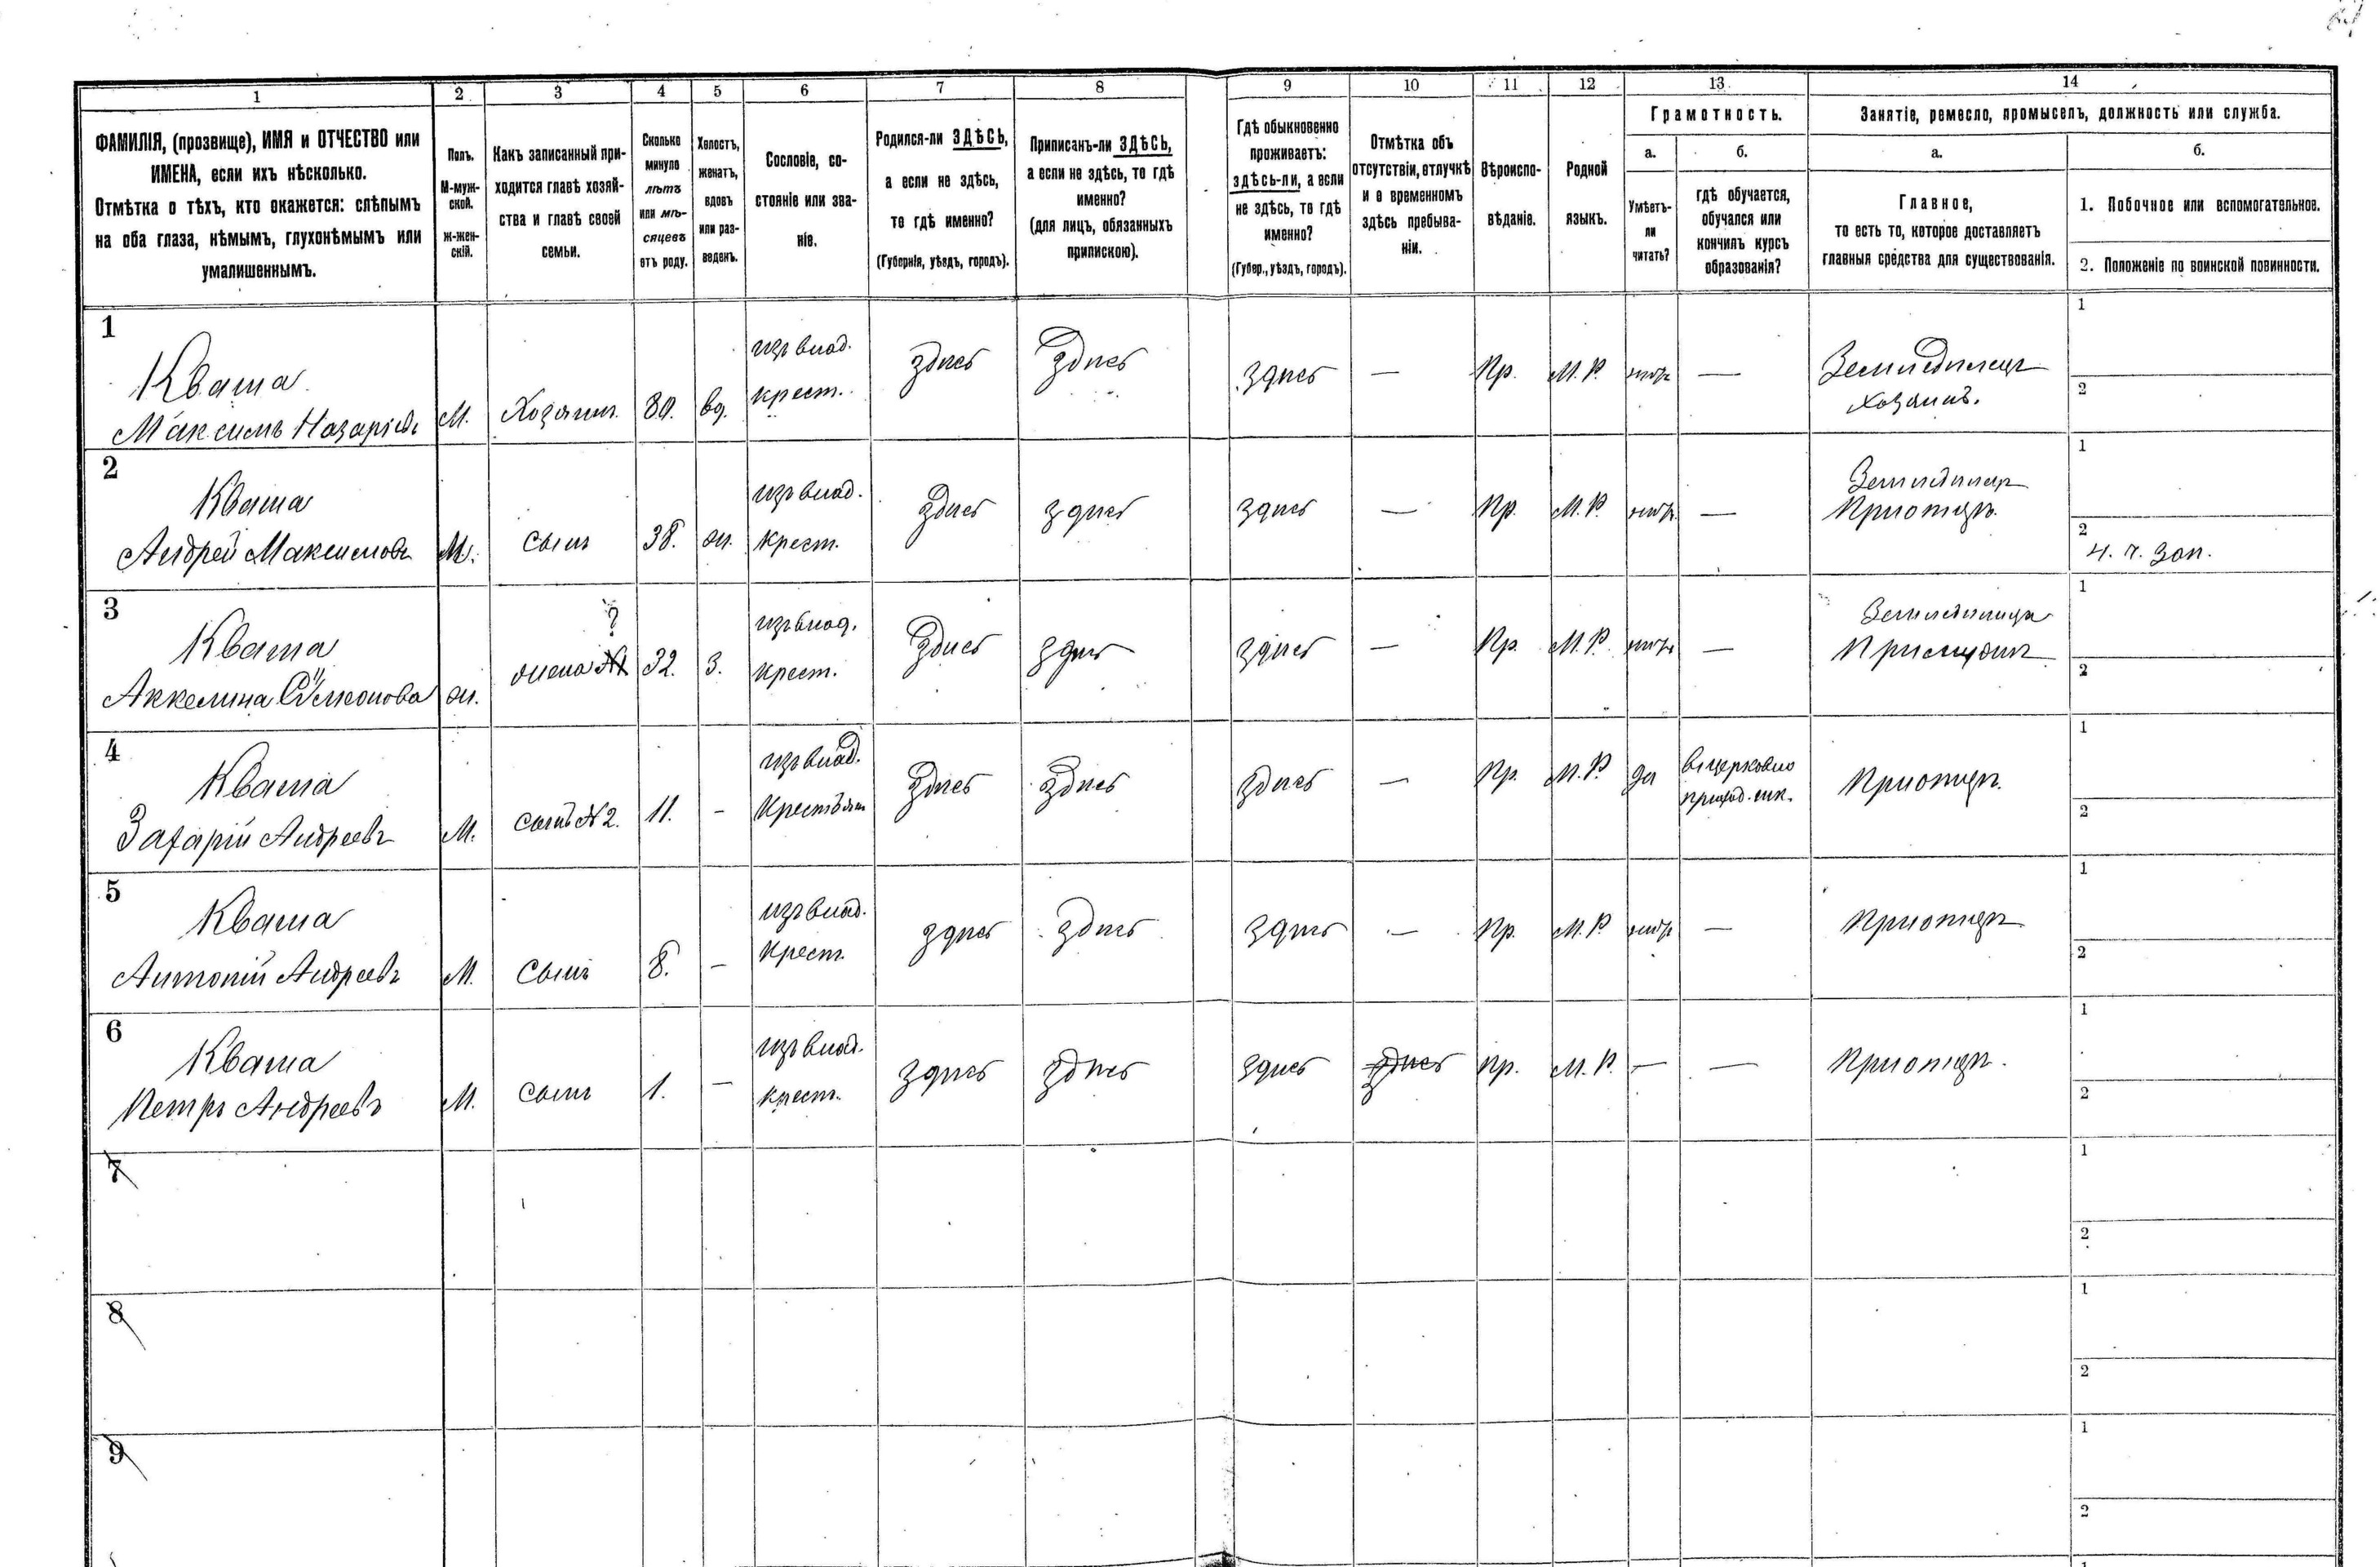 1 2 3 4 5 6 7 8 9 10 11 12 13 14
ФАМИЛІЯ, (прозвище), ИМЯ и ОТЧЕСТВО или
ИМЕНА, если ихъ нѣсколько.
Отмѣтка о тѣхъ, кто окажется: слѣпымъ
на оба глаза, нѣмымъ, глухонѣмымъ или
умалишеннымъ.
Полъ.
М-муж-
ской.
Ж-жен-
скій.
Какъ записанный при-
ходится главѣ хозяй-
ства и главѣ своей
семьи.
Сколько
минуло
лѣтъ
или мѣ-
сяцевъ
отъ роду.
Холостъ,
женатъ,
вдовъ
или раз-
веденъ.
Сословіе, со-
стояніе или зва-
ніе.
Родился-ли ЗДѢСЬ,
а если не здѣсь,
то гдѣ именно?
(Губернія, уѣздъ, городъ).
Приписанъ-ли ЗДѢСЬ,
а если не здѣсь, то гдѣ
именно?
(для лицъ, обязанныхъ
припискою).
Гдѣ обыкновенно
проживаетъ:
здѣсь-ли, а если
не здѣсь, то гдѣ
именно?
(Губер., уѣздъ, городъ).
Отмѣтка объ
отсутствіи, отлучкѣ
и о временномъ
здѣсь пребыва-
ніи.
Вѣроиспо-
вѣданіе.
Родной
языкъ.
Грамотность.
а.
Умѣетъ-
ли
читать?
б.
гдѣ обучается,
обучался или
кончилъ курсъ
образованія?
Занятіе, ремесло, промыселъ, должность или служба.
а.
Главное,
то есть то, которое доставляетъ
главныя средства для существованія.
б.
1. Побочное или вспомогательное.
2. Положеніе по воинской повинности.
1
Кваша
Максимъ Назаріев
М.
Хозяинъ
80.
вд.
изъ влад.
крест.
здѣсь
здѣсь
здѣсь
—
Пр.
М. Р.
—
Земледелецъ
хозяинъ.
1
2
2
Кваша
Андрей Максимовъ
М.
сынъ
38.
ж.
изъ влад.
крест.
здѣсь
здѣсь
здѣсь
—
Пр.
М. Р.
—
Земледелецъ
При отцѣ
1
2
Н. ч. зап.
3
Кваша
Аккелина Симеонова
ж.
?
жена №1
32.
З.
изъ влад.
крест.
здѣсь
здѣсь
здѣсь
—
Пр.
М. Р.
—
При мужѣ
1
2
4
Кваша
Захарій Андреевъ
М.
сынъ №2.
11.
-
изъ влад.
Крестьян
здѣсь
здѣсь
здѣсь
—
Пр.
М. Р.
да
въ церковно
приход. шк.
При отцѣ
1
2
5
Кваша
Антоній Андреевъ
М.
сынъ
8.
—
изъ влад.
крест.
здѣсь
здѣсь
здѣсь
—
Пр.
М. Р.
—
При отцѣ
1
2
6
Кваша
Петръ Андреевъ
М.
сынъ
1.
—
изъ влад.
крест.
здѣсь
здѣсь
здѣсь
здѣсь
Пр.
М. Р.
—
—
При отцѣ.
1
2
7
1
2
8
1
2
9
1
2